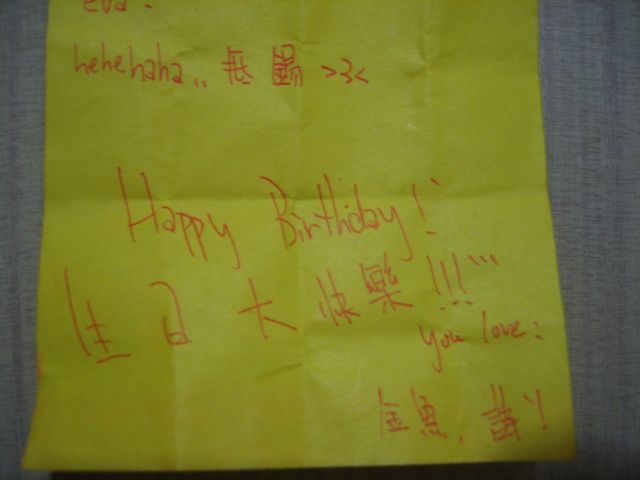 eva.
hehehaha..  >3<
Happy Birthday!
生日大快樂!!!
you love:
金魚.